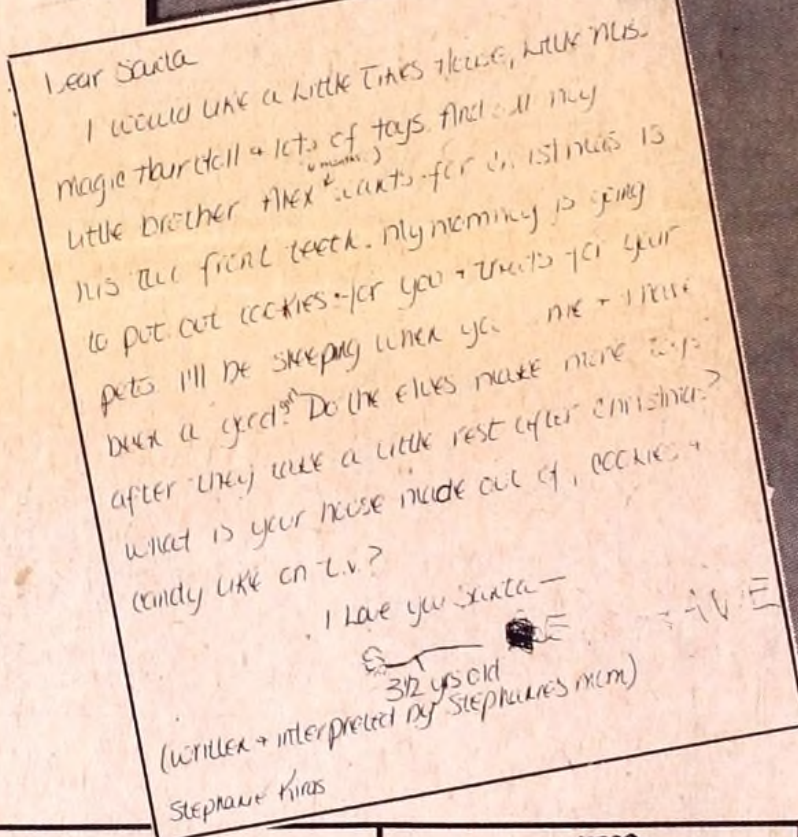 Dear Santa
I would like a Little Tikes House, Little Miss
magic Hair doll + lots of toys. And all my
6 months
little brother Alex wants for Christmas is
his two front teeth. My mommy is going
to put out cookies for you + treats for your
pets I'll be sleeping when you + I have
been a good girl. Do the elves make more toys
after they take a little rest after Christmas?
What is your house made out of, cookies +
candy like on t.v.?
I Love you Santa —
3 1/2 yrs old
(written + interpreted by Stephanie's mom)
Stephanie